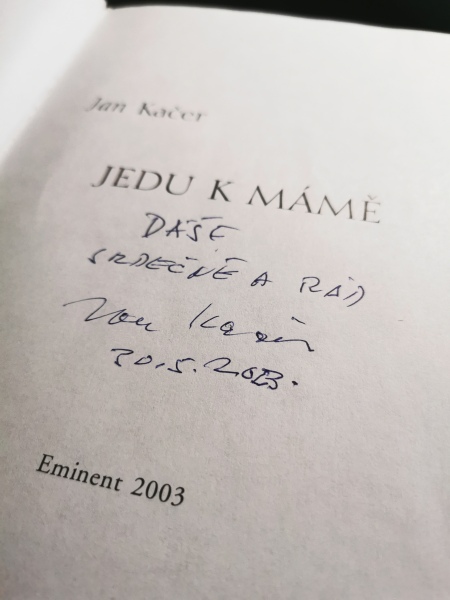 Jan Kačer
JEDU K MÁMĚ
DÁŠE
SRDEČNĚ A RÁD
Jan Kačer
30.5.2003.
Eminent 2003